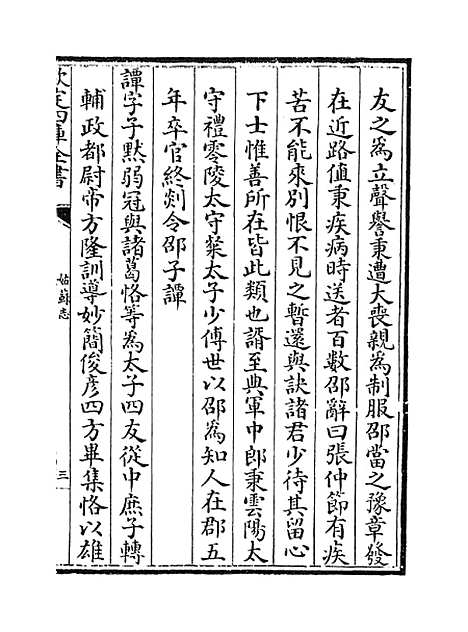 友之為立聲譽秉遭大喪親為制服邵當之豫章發
在近路值秉疾病時送者百數邵辭曰張仲節有疾
苦不能來別恨不見之暫還與訣諸君少待其留心
下士惟善所在皆此類也諝至典軍中郎秉雲陽太
守禮零陵太守粲太子少傅世以邵為知人在郡五
年卒官終剡令邵子譚
譚字子黙弱冠與諸葛恪等為太子四友從中庶子轉
輔政都尉帝方隆訓導妙簡俊彦四方畢集恪以雄
欽定四庫全書
姑蘇志
三